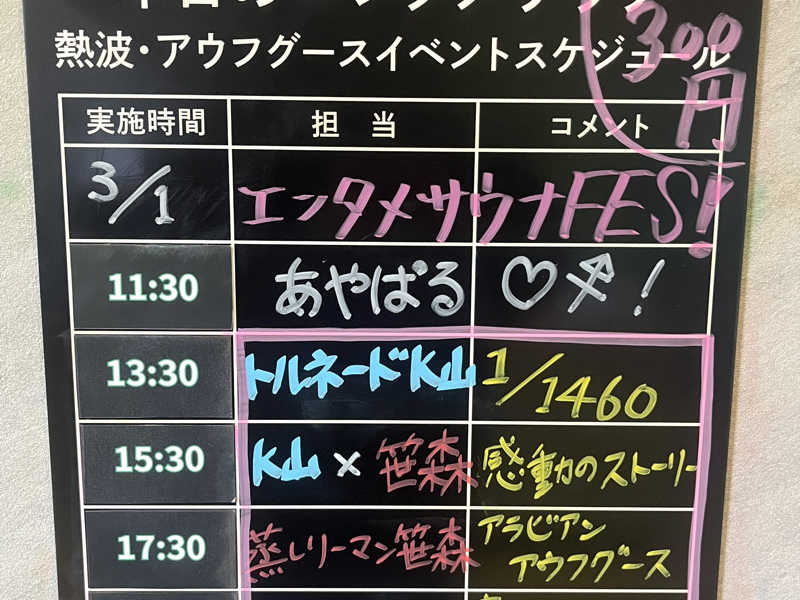 熱波・アウフグースイベントスケジュール
300
円
実施時間 担当 コメント
3/1 エンタメサウナFES!
11:30 あやぱる ♡♐!
13:30 トルネードK山 1/1460
15:30 K山×笹森 感動のストーリー
17:30 蒸しリーマン笹森 アラビアン
アウフグース